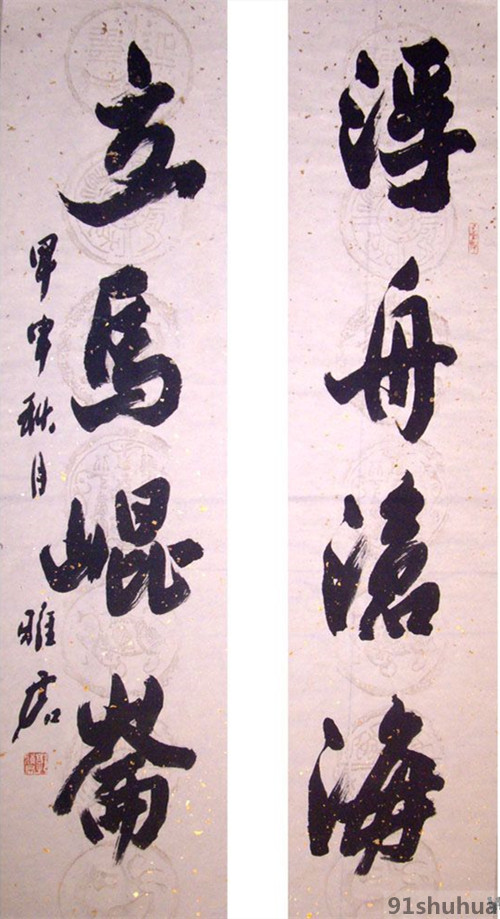 浮舟滄海
立馬崐崙
甲申秋月
91shuhua